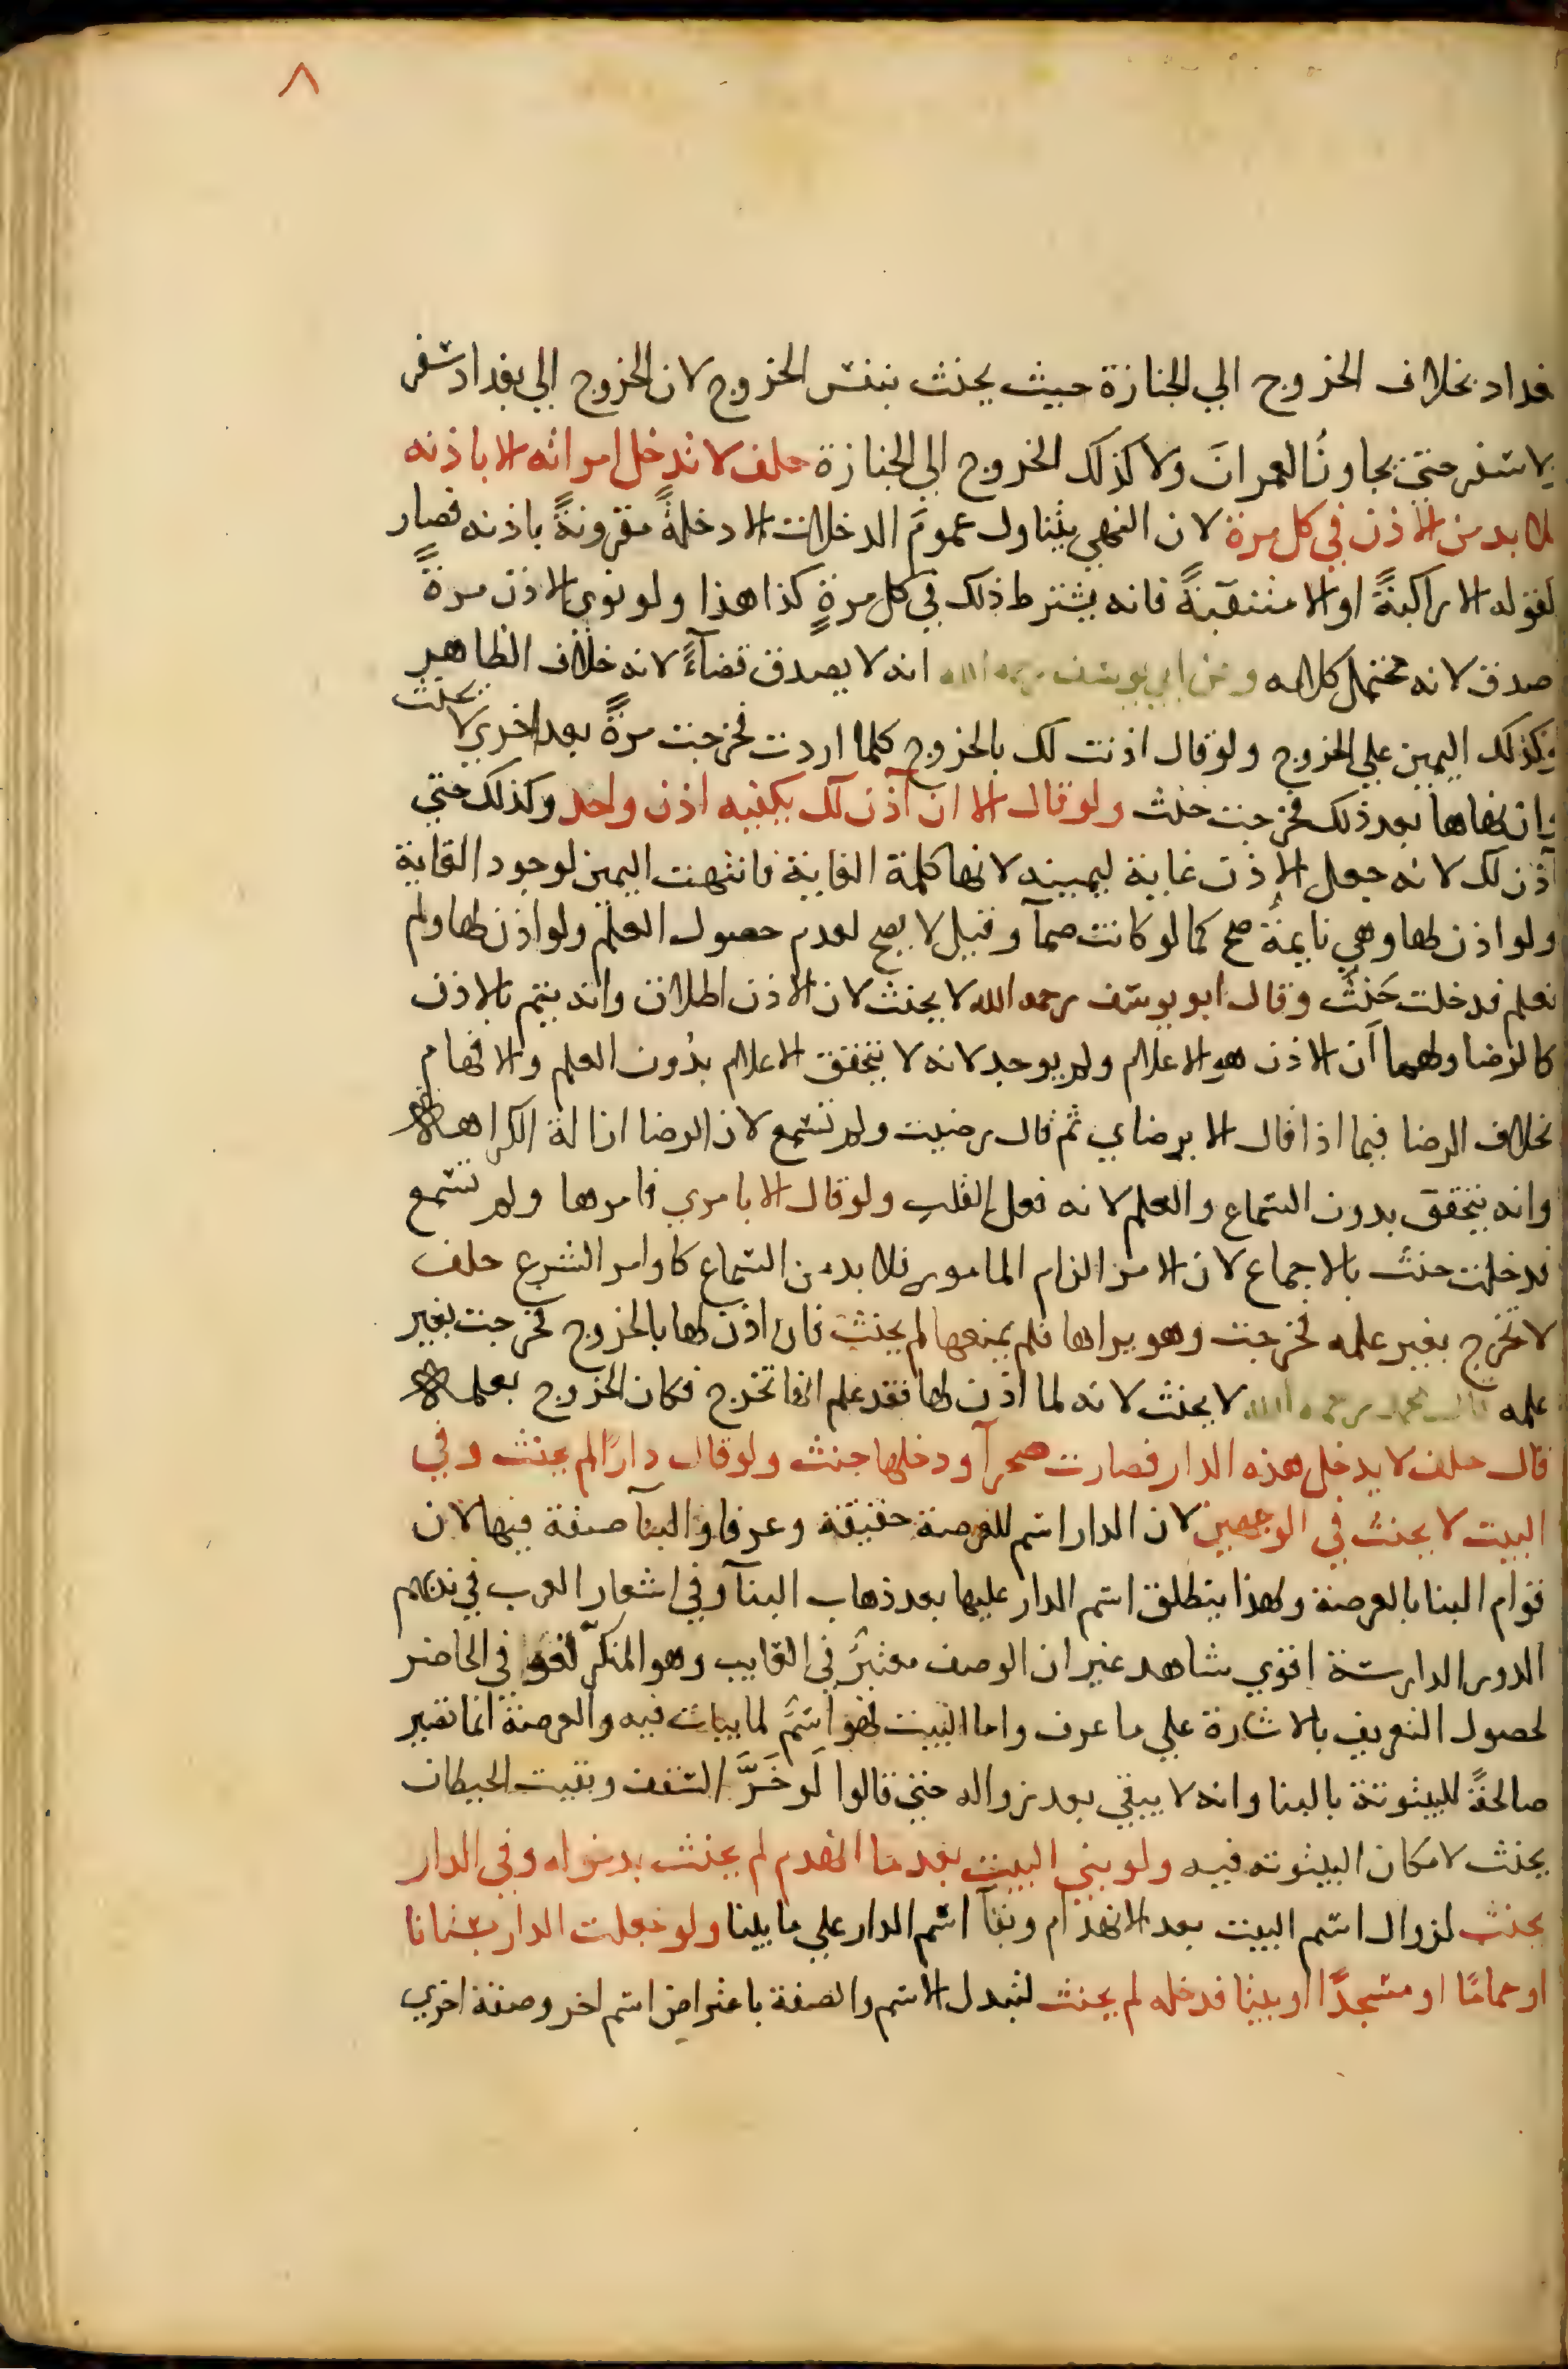 ٨
بغداد بخلاف الخروج الي الجنازة حيث يحنث بنفس الخروج لان الخروج الي بغداد سفر
ولا سفر حتي يجاوز العمرانَ ولا كذلك الخروج الي الجنازة حلف لا تدخل امراته الا باذنه
فلا بد من الاذن في كل مرة لان النهي يتناول عموم الدخلات الا دخلةً مقرونةً باذنه فصار
كقوله الا راكبةً او الا منتقبةً فانه يشترط ذلك في كل مرةٍ كذا هذا ولو نوي الاذن مرةً
صدق لانه محتمل كلامه وعن ابي يوسف رحمه الله انه لا يصدق قضآءً لانه خلاف الظاهر
وكذلك اليمين علي الخروج ولو قال اذنت لك بالخروج كلما اردت فخرجت مرةً بعد اخري لا يحنث
وان نهاها بعد ذلك فخرجت حنث ولو قال الا ان آذن لك يكفيه اذن واحد وكذلك حتي
آذن لك لانه جعل الاذن غاية ليمينه لانها كلمة الغاية فانتهت اليمين لوجود الغاية
ولو اذن لها وهي نايمةٌ صح كما لو كانت صمآ وقيل لا يصح لعدم حصول العلم ولو اذن لها ولم
تعلم فدخلت حَنِثَ وقال ابو يوسف رحمه الله لا يحنث لان الاذن اطلاق وانه يتم بالاذن
كالرضا ولهما ان الاذن هو الاعلام ولم يوجد لانه لا يتحقق الاعلام بدون العلم والافهام
بخلاف الرضا فيما اذا قال الا برضاي ثم قال رضيت ولم تسمع لان الرضا ازالة الكراهة
وانه يتحقق بدون السماع والعلم لانه فعل القلب ولو قال الا بامري فامرها ولم تسمع
فدخلت حنث بالاجماع لان الامر الزام المامور فلا بد من السماع كاوامر الشرع حلف
لا تخرج بغير علمه فخرجت وهو يراها فلم يمنعها لم يحنث فان اذن لها بالخروج فخرجت بغير
علمه قال محمد رحمه الله لا يحنث لانه لما اذن لها فقد علم انها تخرج فكان الخروج بعلمه
قال حلف لا يدخل هذه الدار فصارت صحرآ ودخلها حنث ولو قال دارًا لم يحنث وفي
البيت لا يحنث في الوجهين لان الدار اسم للعرصة حقيقة وعرفا والبنآ صفة فيها لان
قوام البنا بالعرصة ولهذا ينطلق اسم الدار عليها بعد ذهاب البنآ وفي اشعار العرب في ندبهم
الدور الدارسة اقوي شاهد غير ان الوصف معتبرٌ في الغايب وهو المنكّر لغو في الحاضر
لحصول التعريف بالاشارة علي ما عرف واما البيت فهو اسمٌ لما يبات فيه والعرصة انما تصير
صالحةً للبيتوتة بالبنا وانه لا يبقي بعد زواله حتي قالوا لَو خَرَّ السقف وبقيت الحيطان
يحنث لامكان البيتوته فيه ولو بني البيت بعد ما انهدم لم يحنث بدخوله وفي الدار
يحنث لزوال اسم البيت بعد الانهدام وبقآ اسم الدار علي ما بينا ولو جعلت الدار بستانا
او حمامًا او مسجدًا او بيتا فدخله لم يحنث لتبدل الاسم والصفة باعتراض اسم اخر وصفة اخري